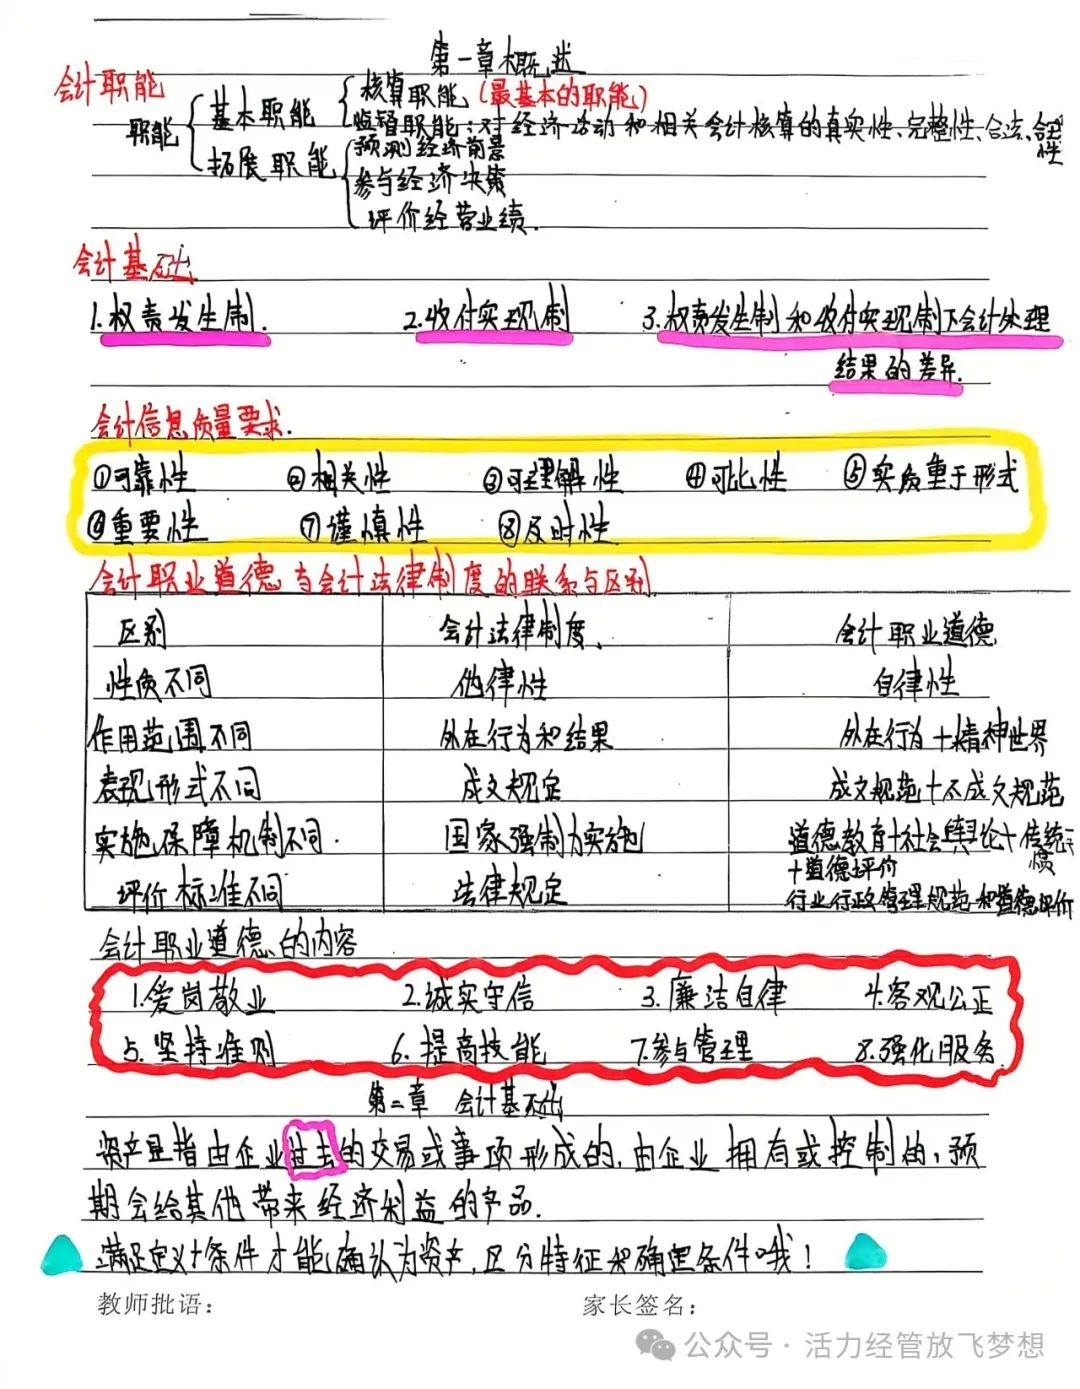 第一章概述
会计职能
职能 基本职能 核算职能(最基本的职能)
监督职能:对经济活动和相关会计核算的真实性、完整性、合法、合理性
拓展职能 预测经济前景
参与经济决策
评价经营业绩.
会计基础
1.权责发生制. 2.收付实现制 3.权责发生制和收付实现制下会计处理
结果的差异.
会计信息质量要求.
①可靠性 ②相关性 ③可理解性 ④可比性 ⑤实质重于形式
⑥重要性 ⑦谨慎性 ⑧及时性
会计职业道德与会计法律制度的联系与区别
区别 会计法律制度 会计职业道德
性质不同 他律性 自律性
作用范围不同 外在行为和结果 外在行为+精神世界
表现形式不同 成文规定 成文规范+不成文规范
实施保障机制不同. 国家强制力实施 道德教育+社会舆论+传统习惯
+道德评价
评价标准不同 法律规定 行业行政管理规范和道德评价
会计职业道德的内容
1.爱岗敬业 2.诚实守信 3.廉洁自律 4.客观公正
5.坚持准则 6.提高技能 7.参与管理 8.强化服务
第二章 会计基础
资产是指由企业过去的交易或事项形成的,由企业拥有或控制的,预
期会给其他带来经济利益的产品.
满足定义+条件才能确认为资产,区分特征和确定条件哦!
教师批语: 家长签名:
公众号·活力经管放飞梦想